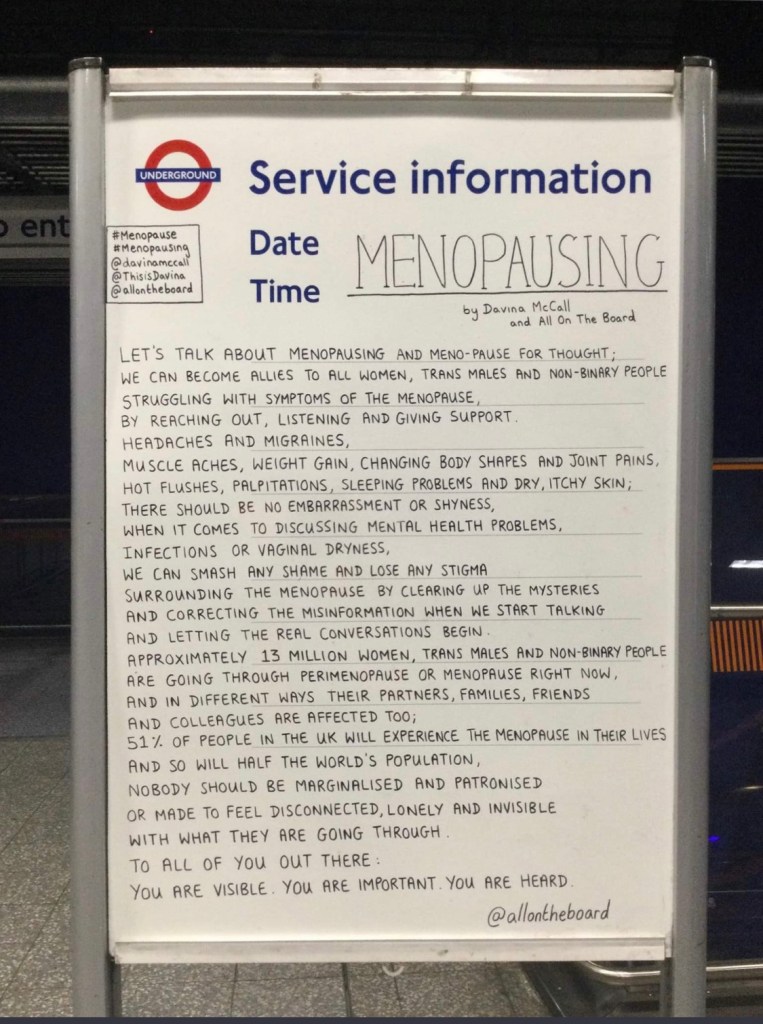 UNDERGROUND
Service information
#Menopause
#Menopausing
@davinamccall
@ThisisDavina
@allontheboard
Date
Time
MENOPAUSING
by Davina McCall
and All On The Board
o ent
LET'S TALK ABOUT MENOPAUSING AND MENO-PAUSE FOR THOUGHT;
WE CAN BECOME ALLIES TO ALL WOMEN, TRANS MALES AND NON-BINARY PEOPLE
STRUGGLING WITH SYMPTOMS OF THE MENOPAUSE,
BY REACHING OUT, LISTENING AND GIVING SUPPORT.
HEADACHES AND MIGRAINES,
MUSCLE ACHES, WEIGHT GAIN, CHANGING BODY SHAPES AND JOINT PAINS,
HOT FLUSHES, PALPITATIONS, SLEEPING PROBLEMS AND DRY, ITCHY SKIN;
THERE SHOULD BE NO EMBARRASSMENT OR SHYNESS,
WHEN IT COMES TO DISCUSSING MENTAL HEALTH PROBLEMS,
INFECTIONS OR VAGINAL DRYNESS,
WE CAN SMASH ANY SHAME AND LOSE ANY STIGMA
SURROUNDING THE MENOPAUSE BY CLEARING UP THE MYSTERIES
AND CORRECTING THE MISINFORMATION WHEN WE START TALKING
AND LETTING THE REAL CONVERSATIONS BEGIN.
APPROXIMATELY 13 MILLION WOMEN, TRANS MALES AND NON-BINARY PEOPLE
ARE GOING THROUGH PERIMENOPAUSE OR MENOPAUSE RIGHT NOW,
AND IN DIFFERENT WAYS THEIR PARTNERS, FAMILIES, FRIENDS
AND COLLEAGUES ARE AFFECTED TOO;
51% OF PEOPLE IN THE UK WILL EXPERIENCE THE MENOPAUSE IN THEIR LIVES
AND SO WILL HALF THE WORLD'S POPULATION,
NOBODY SHOULD BE MARGINALISED AND PATRONISED
OR MADE TO FEEL DISCONNECTED, LONELY AND INVISIBLE
WITH WHAT THEY ARE GOING THROUGH.
TO ALL OF YOU OUT THERE:
YOU ARE VISIBLE. YOU ARE IMPORTANT. YOU ARE HEARD.
@allontheboard